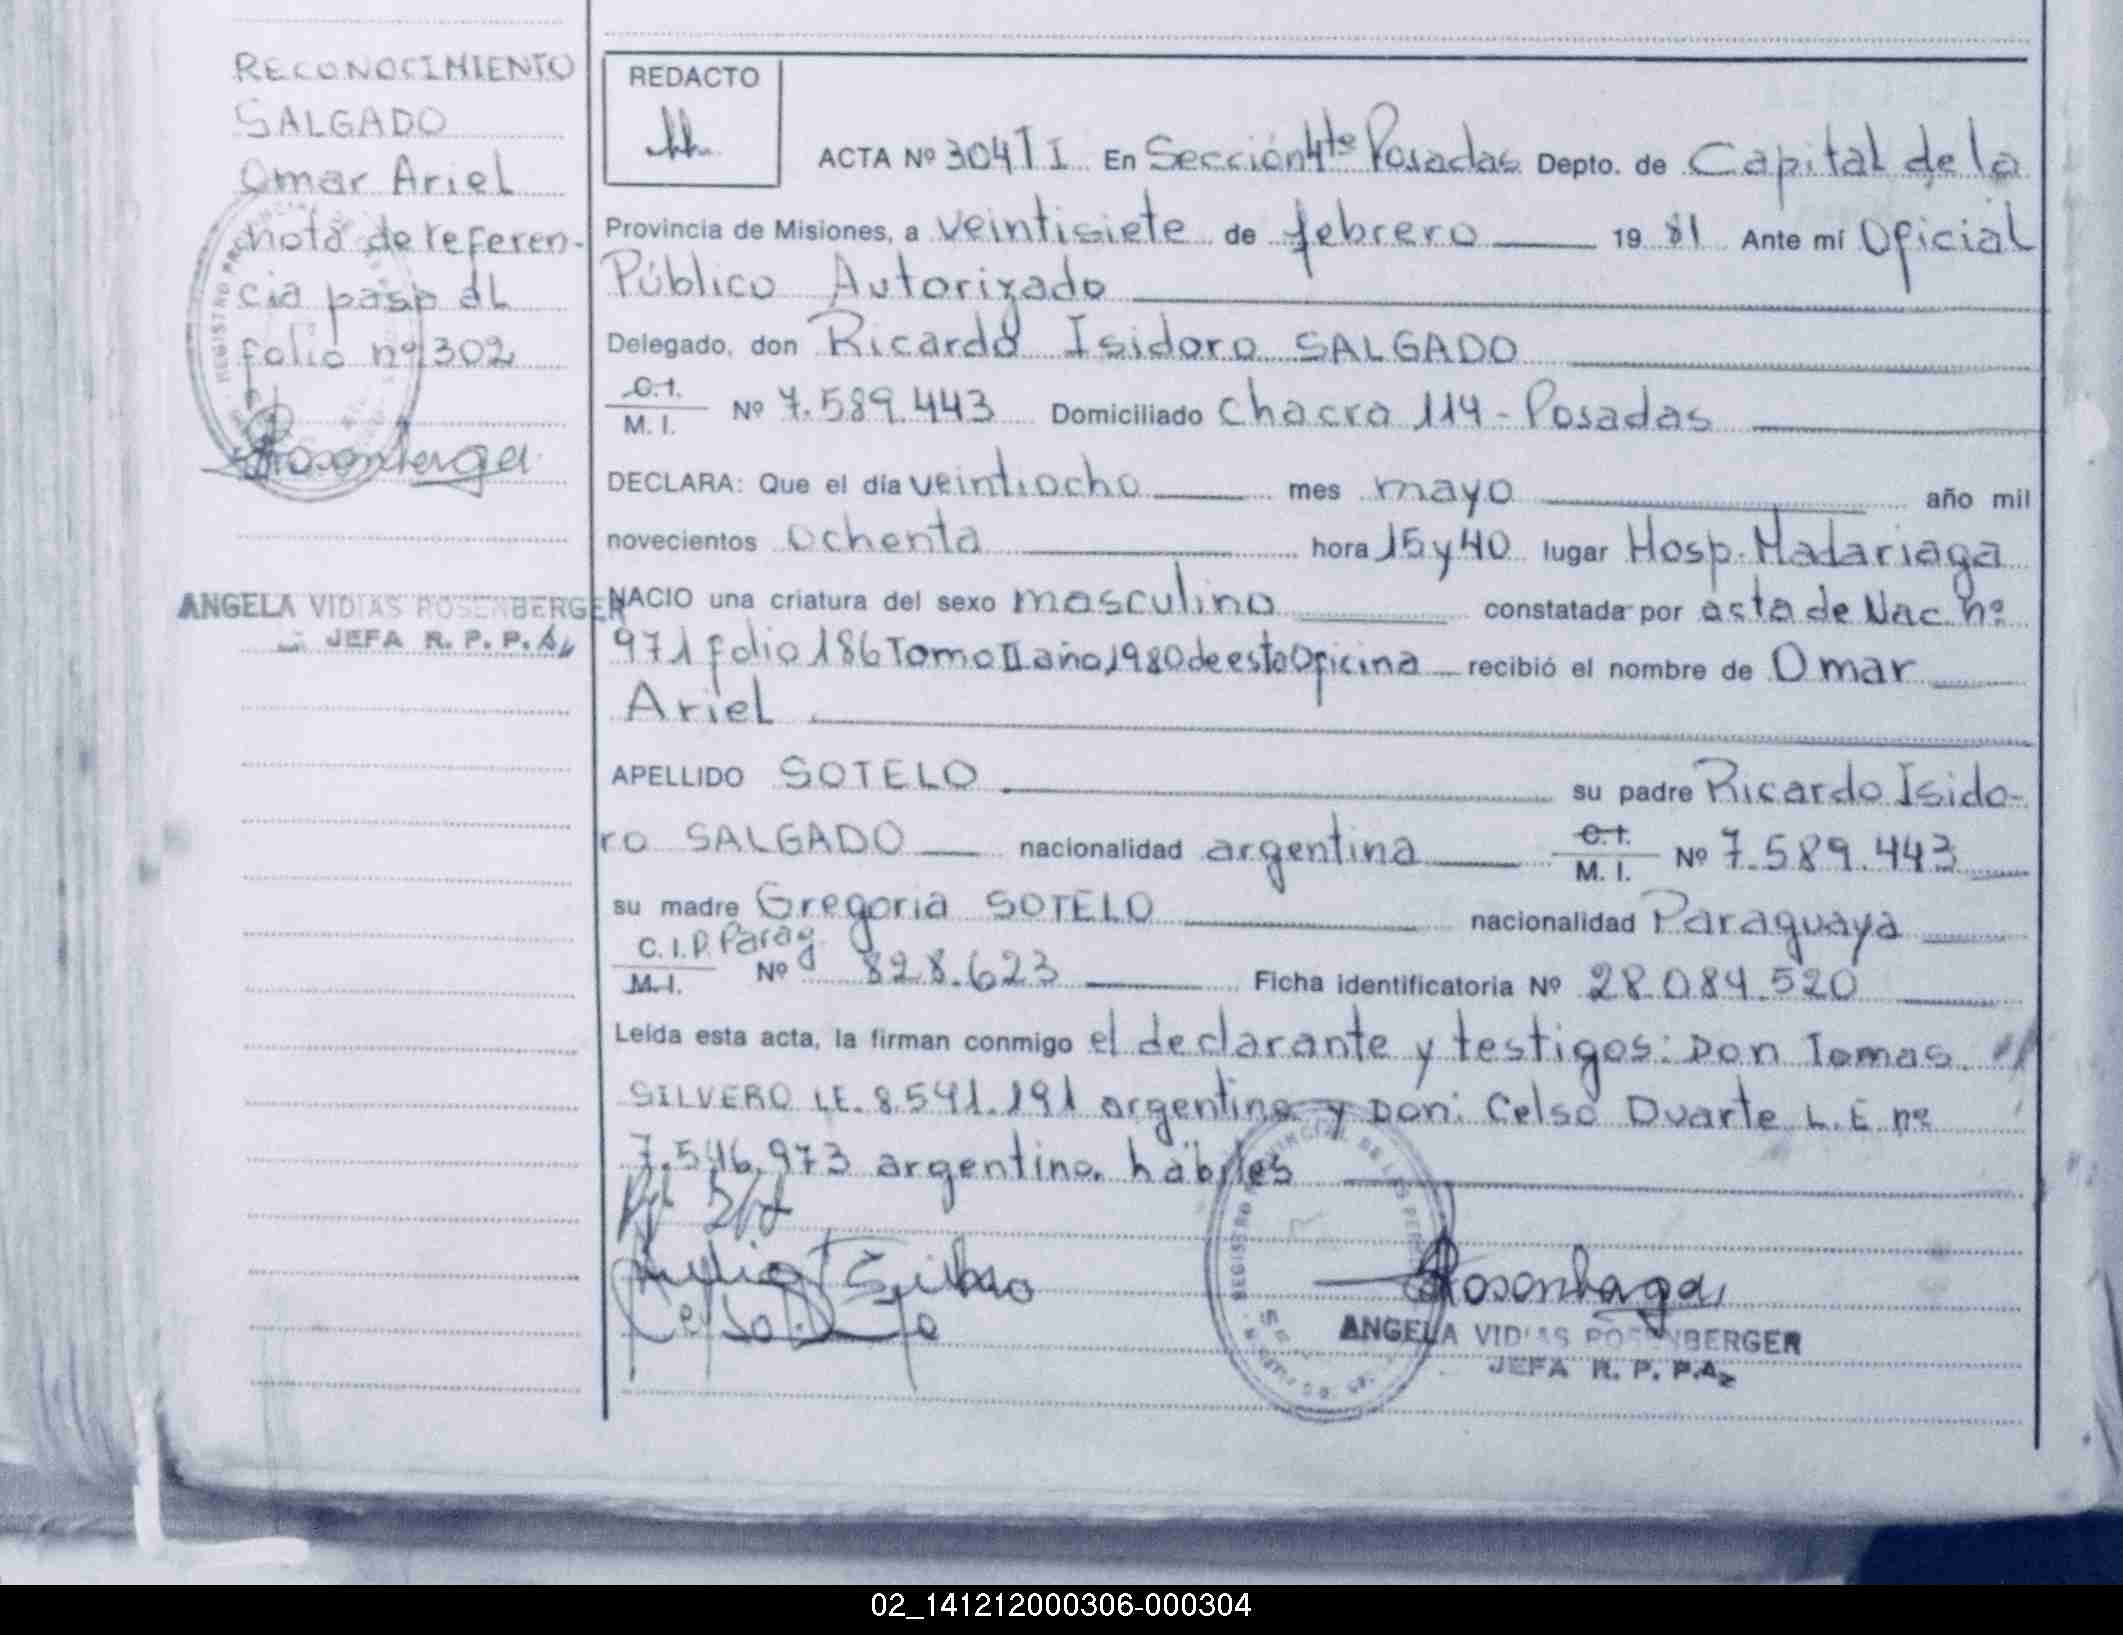 RECONOCIMIENTO
SALGADO
Omar Ariel
nota de referen-
cia pasa al
folio nº 302
ANGELA VIDIAS ROSENBERGER
JEFA R. P. P.
REDACTO
ACTA Nº 304 T I En Sección 4ta Posadas Depto. de Capital de la
Provincia de Misiones, a veintisiete de febrero 1981 Ante mí Oficial
Público Autorizado
Delegado, don Ricardo Isidoro SALGADO
C.I.
M. I. Nº 7.589.443 Domiciliado Chacra 114 - Posadas
DECLARA: Que el día veintiocho mes mayo año mil
novecientos ochenta hora 15 y 40 lugar Hosp. Madariaga
NACIO una criatura del sexo masculino constatada por acta de Nac nº
971 folio 186 Tomo II año 1980 de esta Oficina recibió el nombre de Omar
Ariel
APELLIDO SOTELO su padre Ricardo Isido-
ro SALGADO nacionalidad argentina C.I.
M. I. Nº 7.589.443
su madre Gregoria SOTELO nacionalidad Paraguaya
C.I.P. Parag.
M.I. Nº 828.623 Ficha identificatoria Nº 28.084.520
Leída esta acta, la firman conmigo el declarante y testigos: Don Tomas
SILVERO LE. 8.541.191 argentino y Don: Celso Duarte L.E nº
7.546.973 argentino. hábiles
ANGELA VIDIAS ROSENBERGER
JEFA R. P. P.
02_141212000306-000304